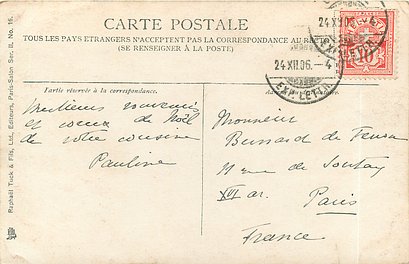 CARTE POSTALE
TOUS LES PAYS ETRANGERS N'ACCEPTENT PAS LA CORRESPONDANCE AU RECTO
(SE RENSEIGNER À LA POSTE)
24 XII 06. - 4
EXP. LETTR.
10
Partie réservée à la correspondance.
souvenirs
et voeux de Noël
de votre cousine
Pauline
Monsieur
Bernard de
11 rue de
XVI ar. Paris
France
Raphaël Tuck & Fils, Ltd., Editeurs, Paris-Salon Ser. II, No. 16.